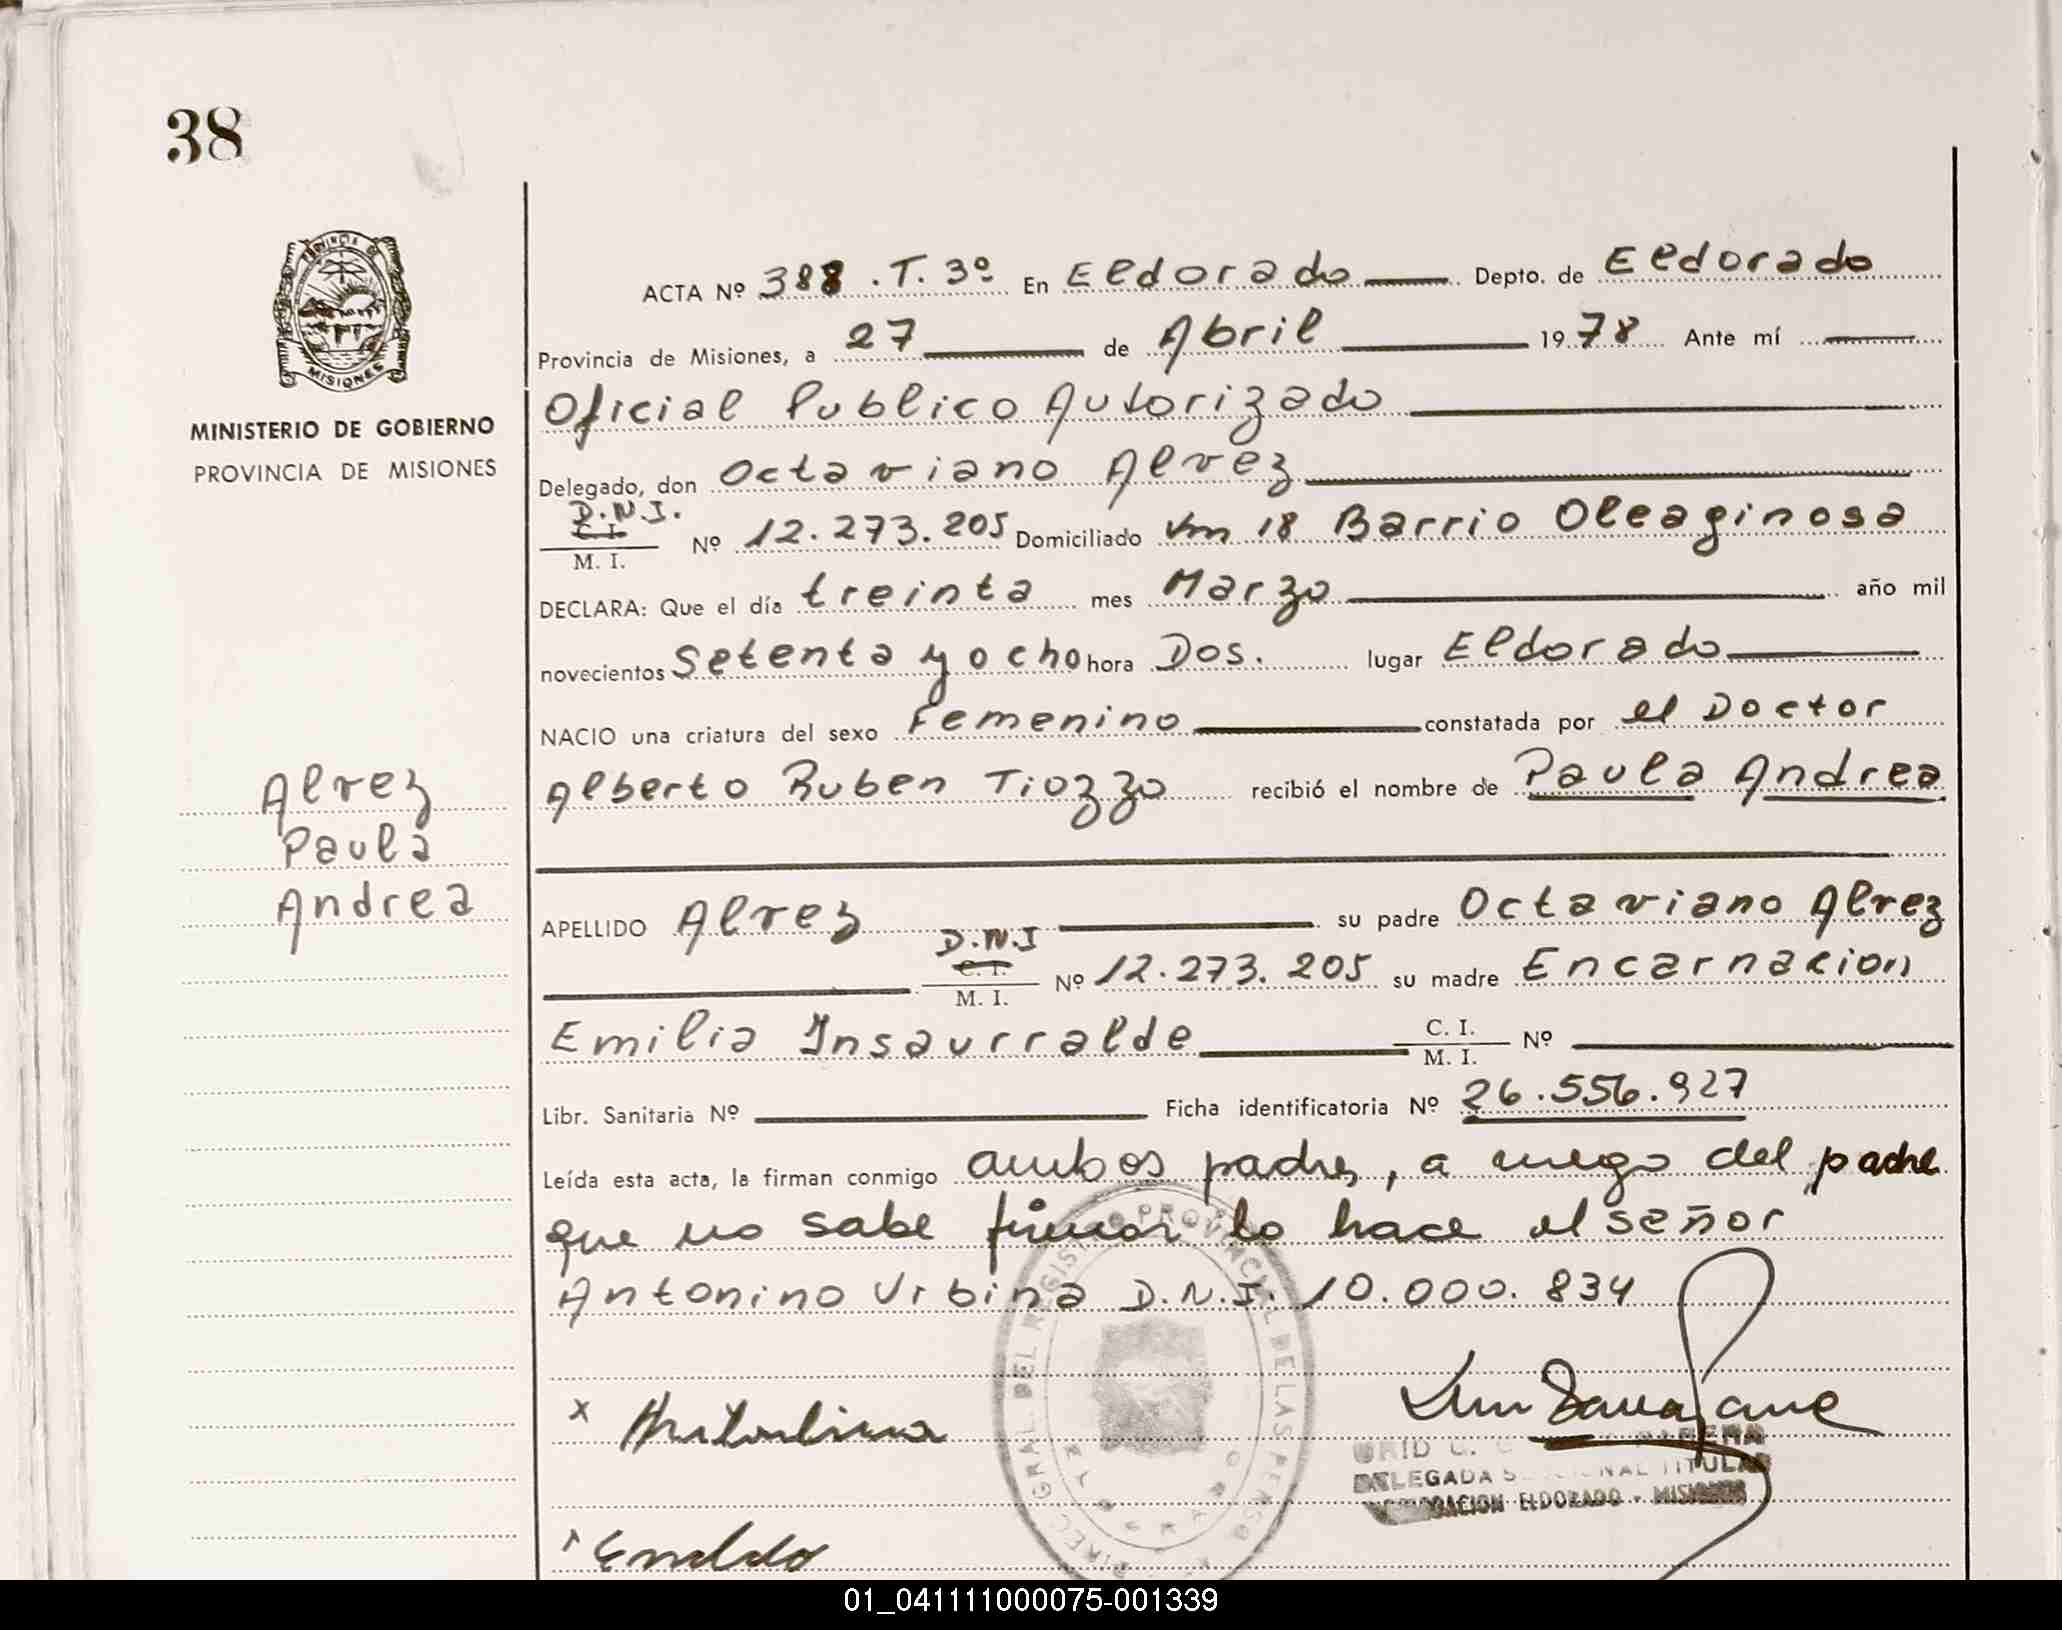 38
PROVINCIA DE
MISIONES
MINISTERIO DE GOBIERNO
PROVINCIA DE MISIONES
Alvez
Paula
Andrea
ACTA Nº 388 . T. 3º En Eldorado Depto. de Eldorado
Provincia de Misiones, a 27 de Abril 1978 Ante mí
Oficial Publico Autorizado
Delegado, don Octaviano Alvez
D.N.I.
C. I.
M. I. Nº 12.273.205 Domiciliado km 18 Barrio Oleaginosa
DECLARA: Que el día treinta mes Marzo año mil
novecientos Setenta y ocho hora Dos. lugar Eldorado
NACIO una criatura del sexo Femenino constatada por el Doctor
Alberto Ruben Tiozzo recibió el nombre de Paula Andrea
APELLIDO Alvez su padre Octaviano Alvez
D.N.I
C. I.
M. I. Nº 12.273.205 su madre Encarnacion
Emilia Insaurralde C. I.
M. I. Nº
Libr. Sanitaria Nº Ficha identificatoria Nº 26.556.927
Leída esta acta, la firman conmigo ambos padres, a ruego del padre
que no sabe firmar lo hace el señor
Antonino Urbina D.N.I. 10.000.834
GRAL DEL REGISTRO PROVINCIAL DE LAS PERSO
x
DELEGADA TITULAR
ELDORADO - MISIONES
01_041111000075-001339